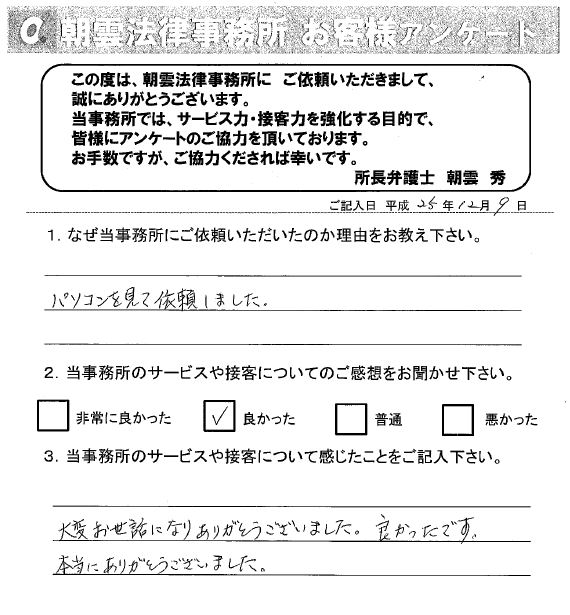 α. 朝雲法律事務所 お客様アンケート
この度は、朝雲法律事務所に ご依頼いただきまして、
誠にありがとうございます。
当事務所では、サービス力・接客力を強化する目的で、
皆様にアンケートのご協力を頂いております。
お手数ですが、ご協力くだされば幸いです。
所長弁護士 朝雲 秀
ご記入日 平成 25年12月9日
1. なぜ当事務所にご依頼いただいたのか理由をお教え下さい。
パソコンを見て依頼しました。
2. 当事務所のサービスや接客についてのご感想をお聞かせ下さい。
非常に良かった ✓ 良かった 普通 悪かった
3. 当事務所のサービスや接客について感じたことをご記入下さい。
大変お世話になりありがとうございました。良かったです。
本当にありがとうございました。